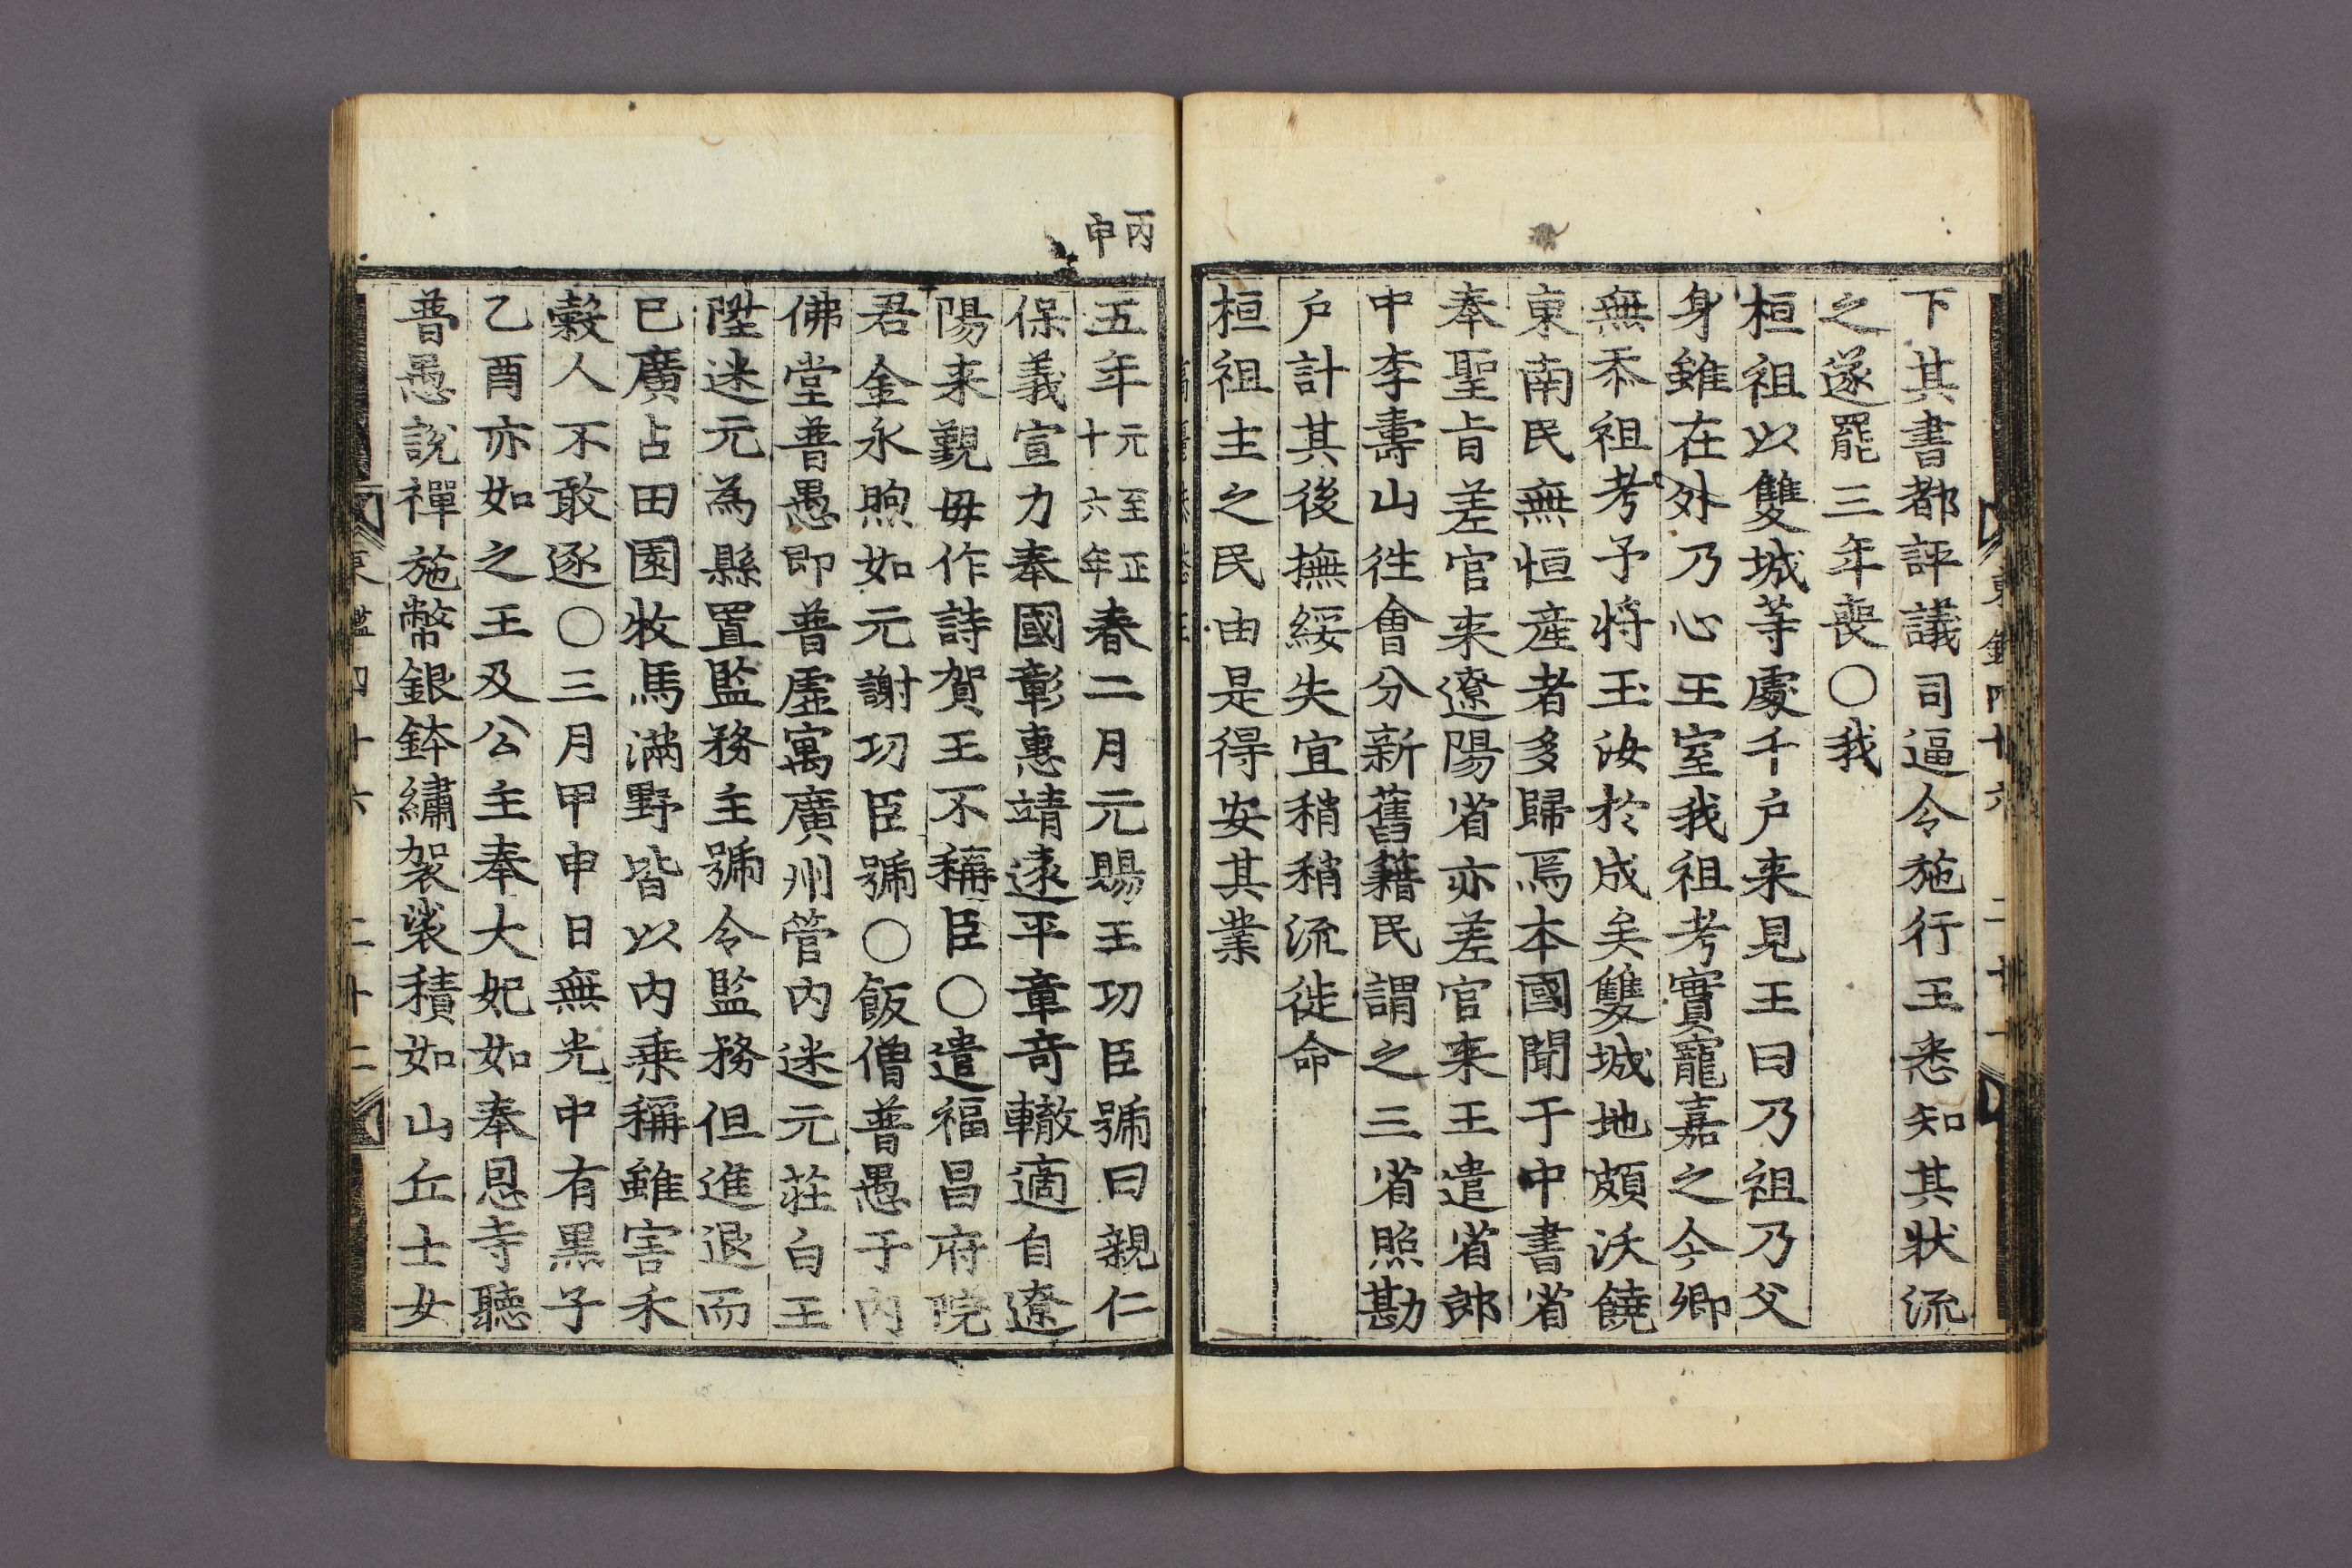 下其書都評議司逼令施行王悉知其狀流
之遂罷三年喪○我
桓祖以雙城等處千户来見王曰乃祖乃父
身雖在外乃心王室我祖考實寵嘉之今卿
無忝祖考予將玉汝於成矣雙城地頗沃饒
東南民無恒産者多歸焉本國聞于中書省
奉聖旨差官来遼陽省亦差官来王遣省郎
中李壽山徃會分新舊籍民謂之三省照勘
户計其後撫綏失宜稍稍流徙命
桓祖主之民由是得安其業
丙申
五年元至正十六年春二月元賜王功臣號曰親仁
保義宣力奉國彰惠靖遠平章竒轍適自遼
陽来覲毋作詩賀王不稱臣○遣福昌府院
君金永煦如元謝功臣號○飯僧普愚于内
佛堂普愚即普虛寓廣州管内迷元莊白王
陞迷元為縣置監務主號令監務但進退而
已廣占田園牧馬滿野皆以内乗稱雖害禾
穀人不敢逐○三月甲申日無光中有黑子
乙酉亦如之王及公主奉大妃如奉恩寺聽
普愚説禪施幣銀鉢繡袈裟積如山丘士女